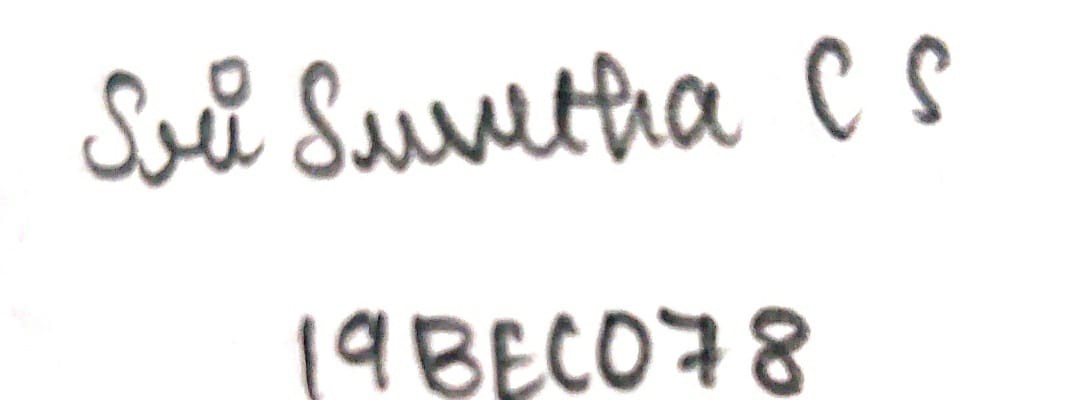 Sri Suvetha C S
19BEC078